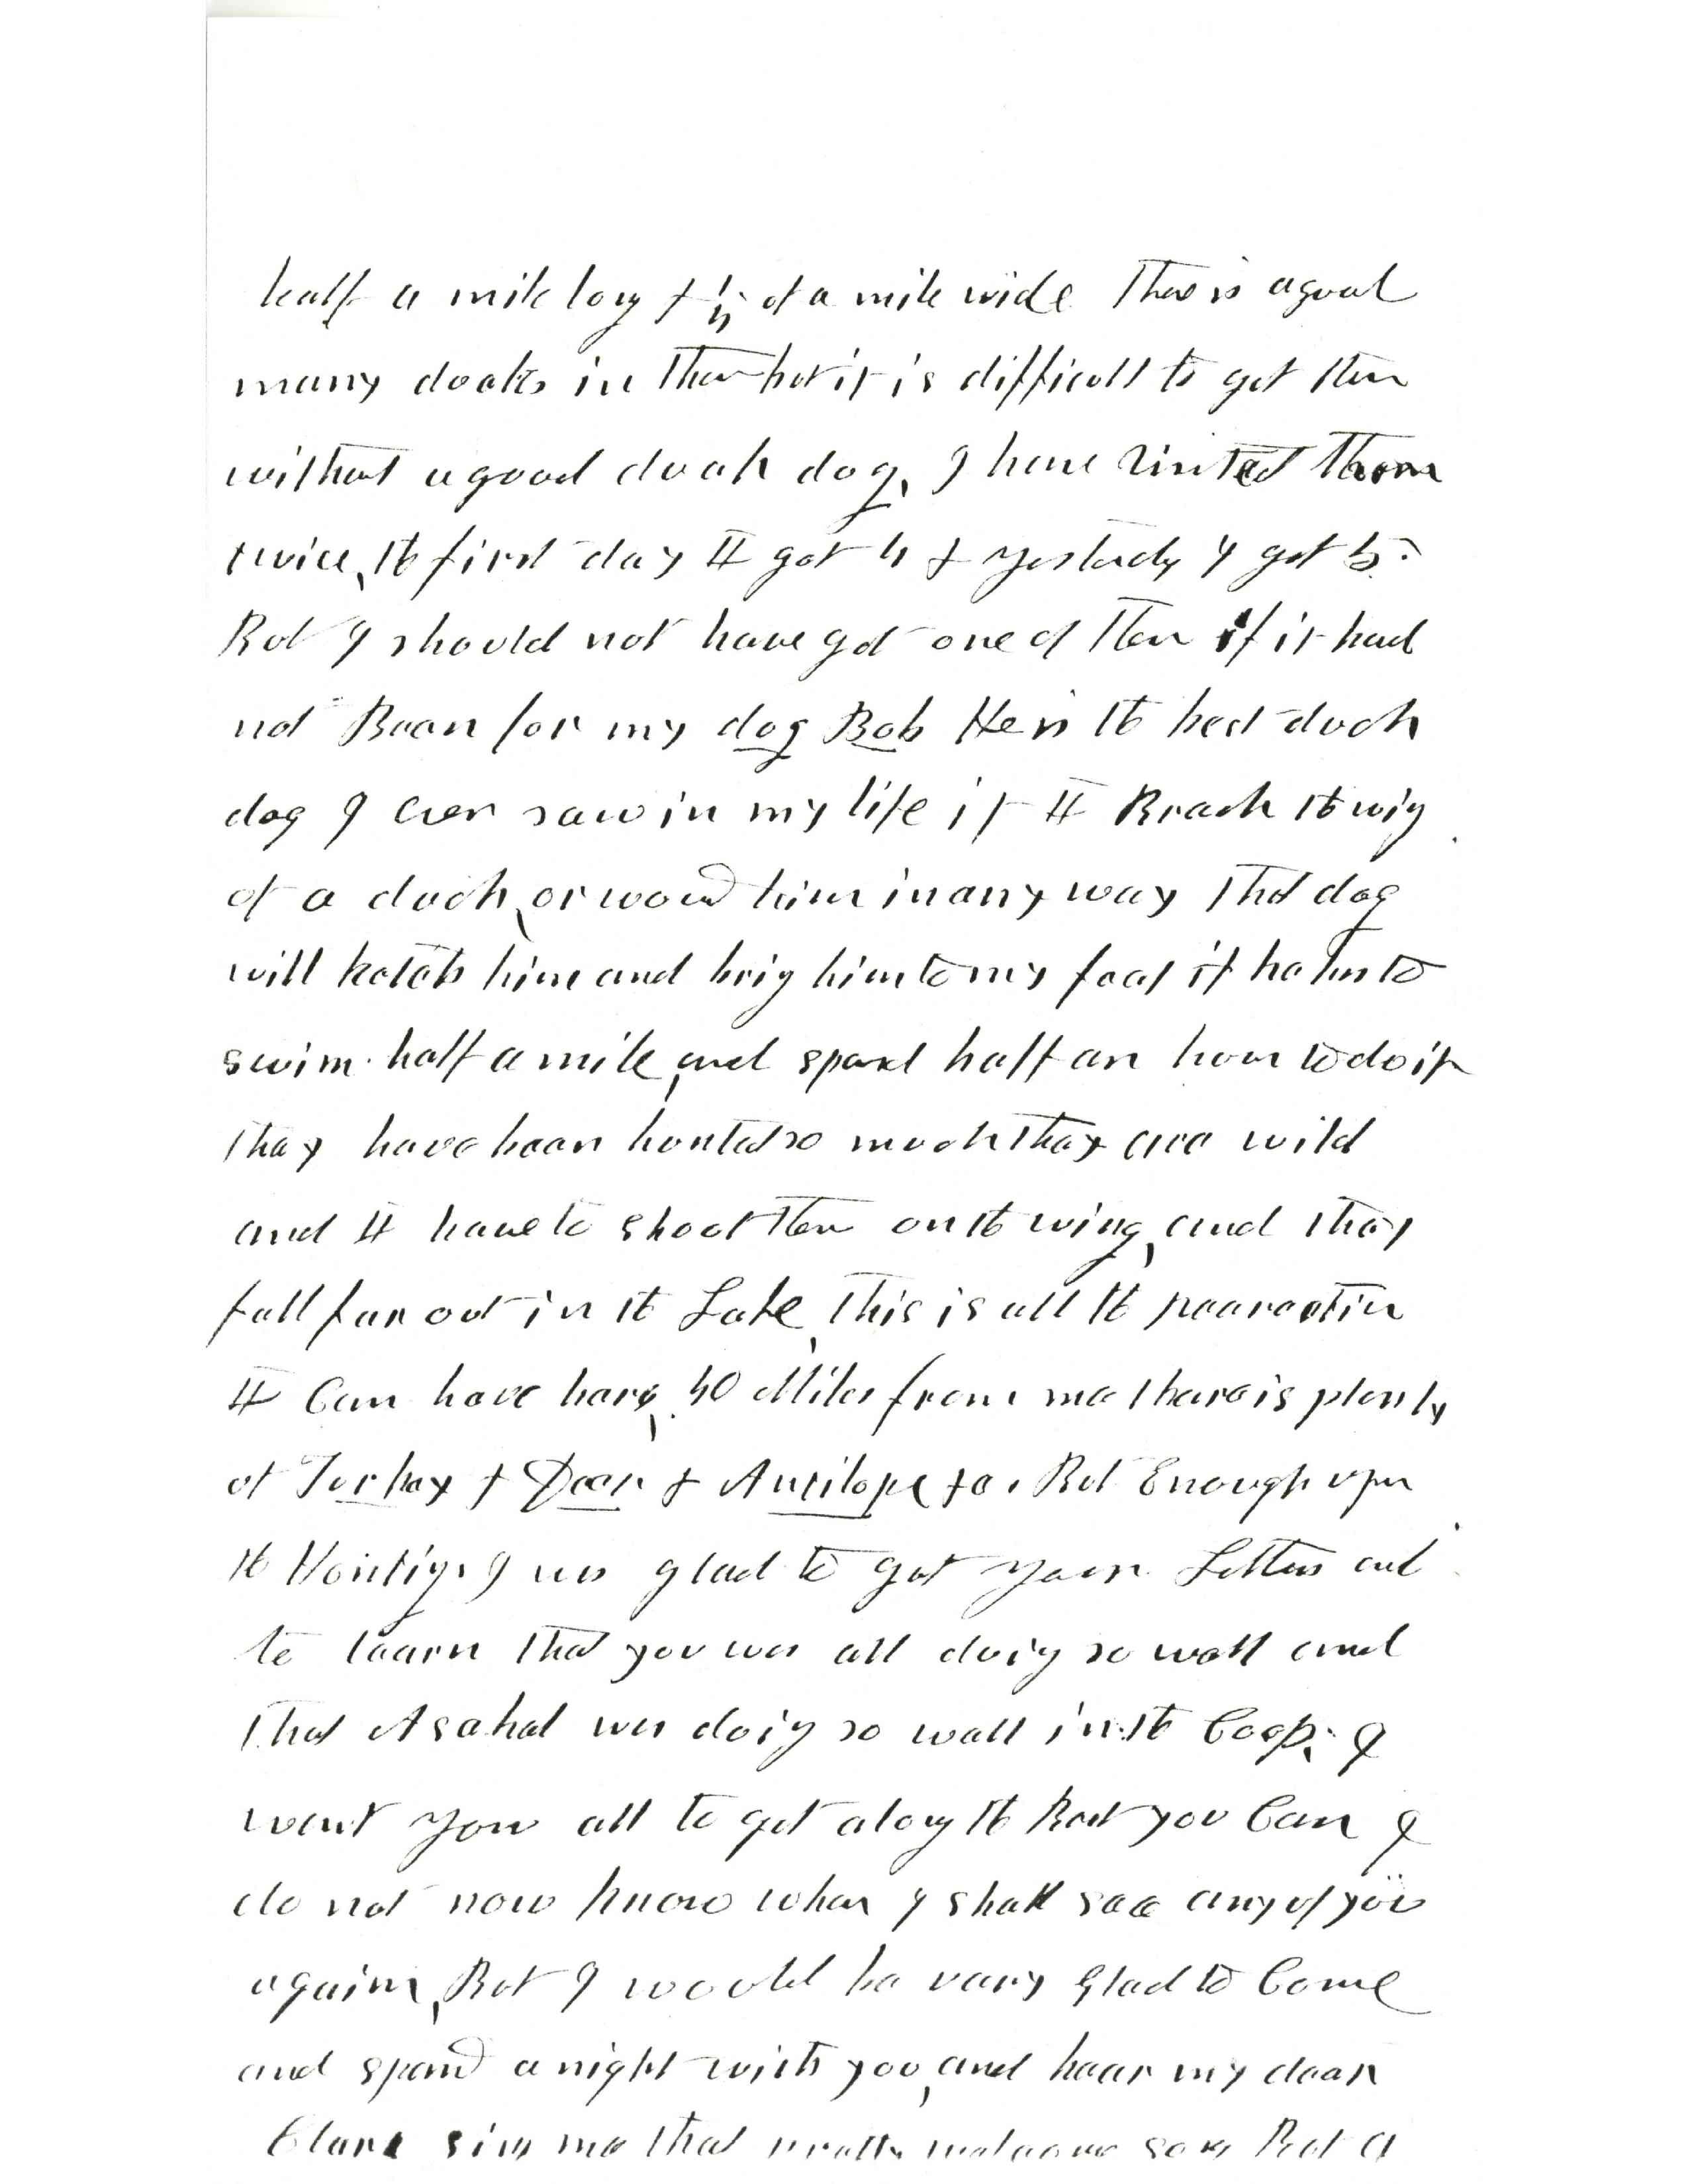 half a mile long & ¼ of a mile wide There is a good
many ducks in them but it is difficult to get them
without a good duck dog, I have visited them
twice, the first day I got 4 & yesterday I got 5.
But I should not have got one of them if it had
not Been for my dog Bob He is the best duck
dog I ever saw in my life if I Break the wing
of a duck, or wound him in any way that dog
will ketch him and bring him to my feet if he has to
swim half a mile, and spend half an hour to do it
They have been hunted so much they are wild
and I have to shoot them on the wing, and they
fall far out in the Lake, This is all the recreation
I Can have here, 40 Miles from me there is plenty
of Turkey & Deer & Antilope &c, But Enough upon
the Hunting. I was glad to get your Letters and
to learn that you was all doing so well and
that Asahel was doing so well in the Coop. I
want you all to get along the Best you Can I
do not now know when I shall see any of you
again, But I would be very glad to Come
and spend a night with you, and hear my dear
Clara sing me that pretty welcome song But a